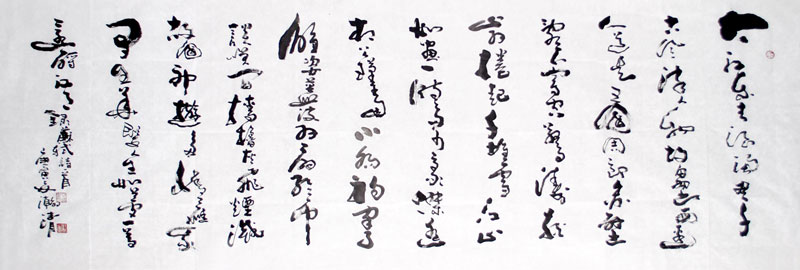 大江東去浪淘盡千
古風流人物故壘西邊
人道是三國周郎赤壁
亂石穿空驚濤裂
岸捲起千堆雪江山
如畫一時多少豪傑遙
想公瑾當年小喬初嫁了
雄姿英發羽扇綸巾
談笑間檣櫓灰飛煙滅
故國神遊多情應笑我
早生華髮人生如夢一尊
還酹江月
錄蘇軾詞一首
庚寅